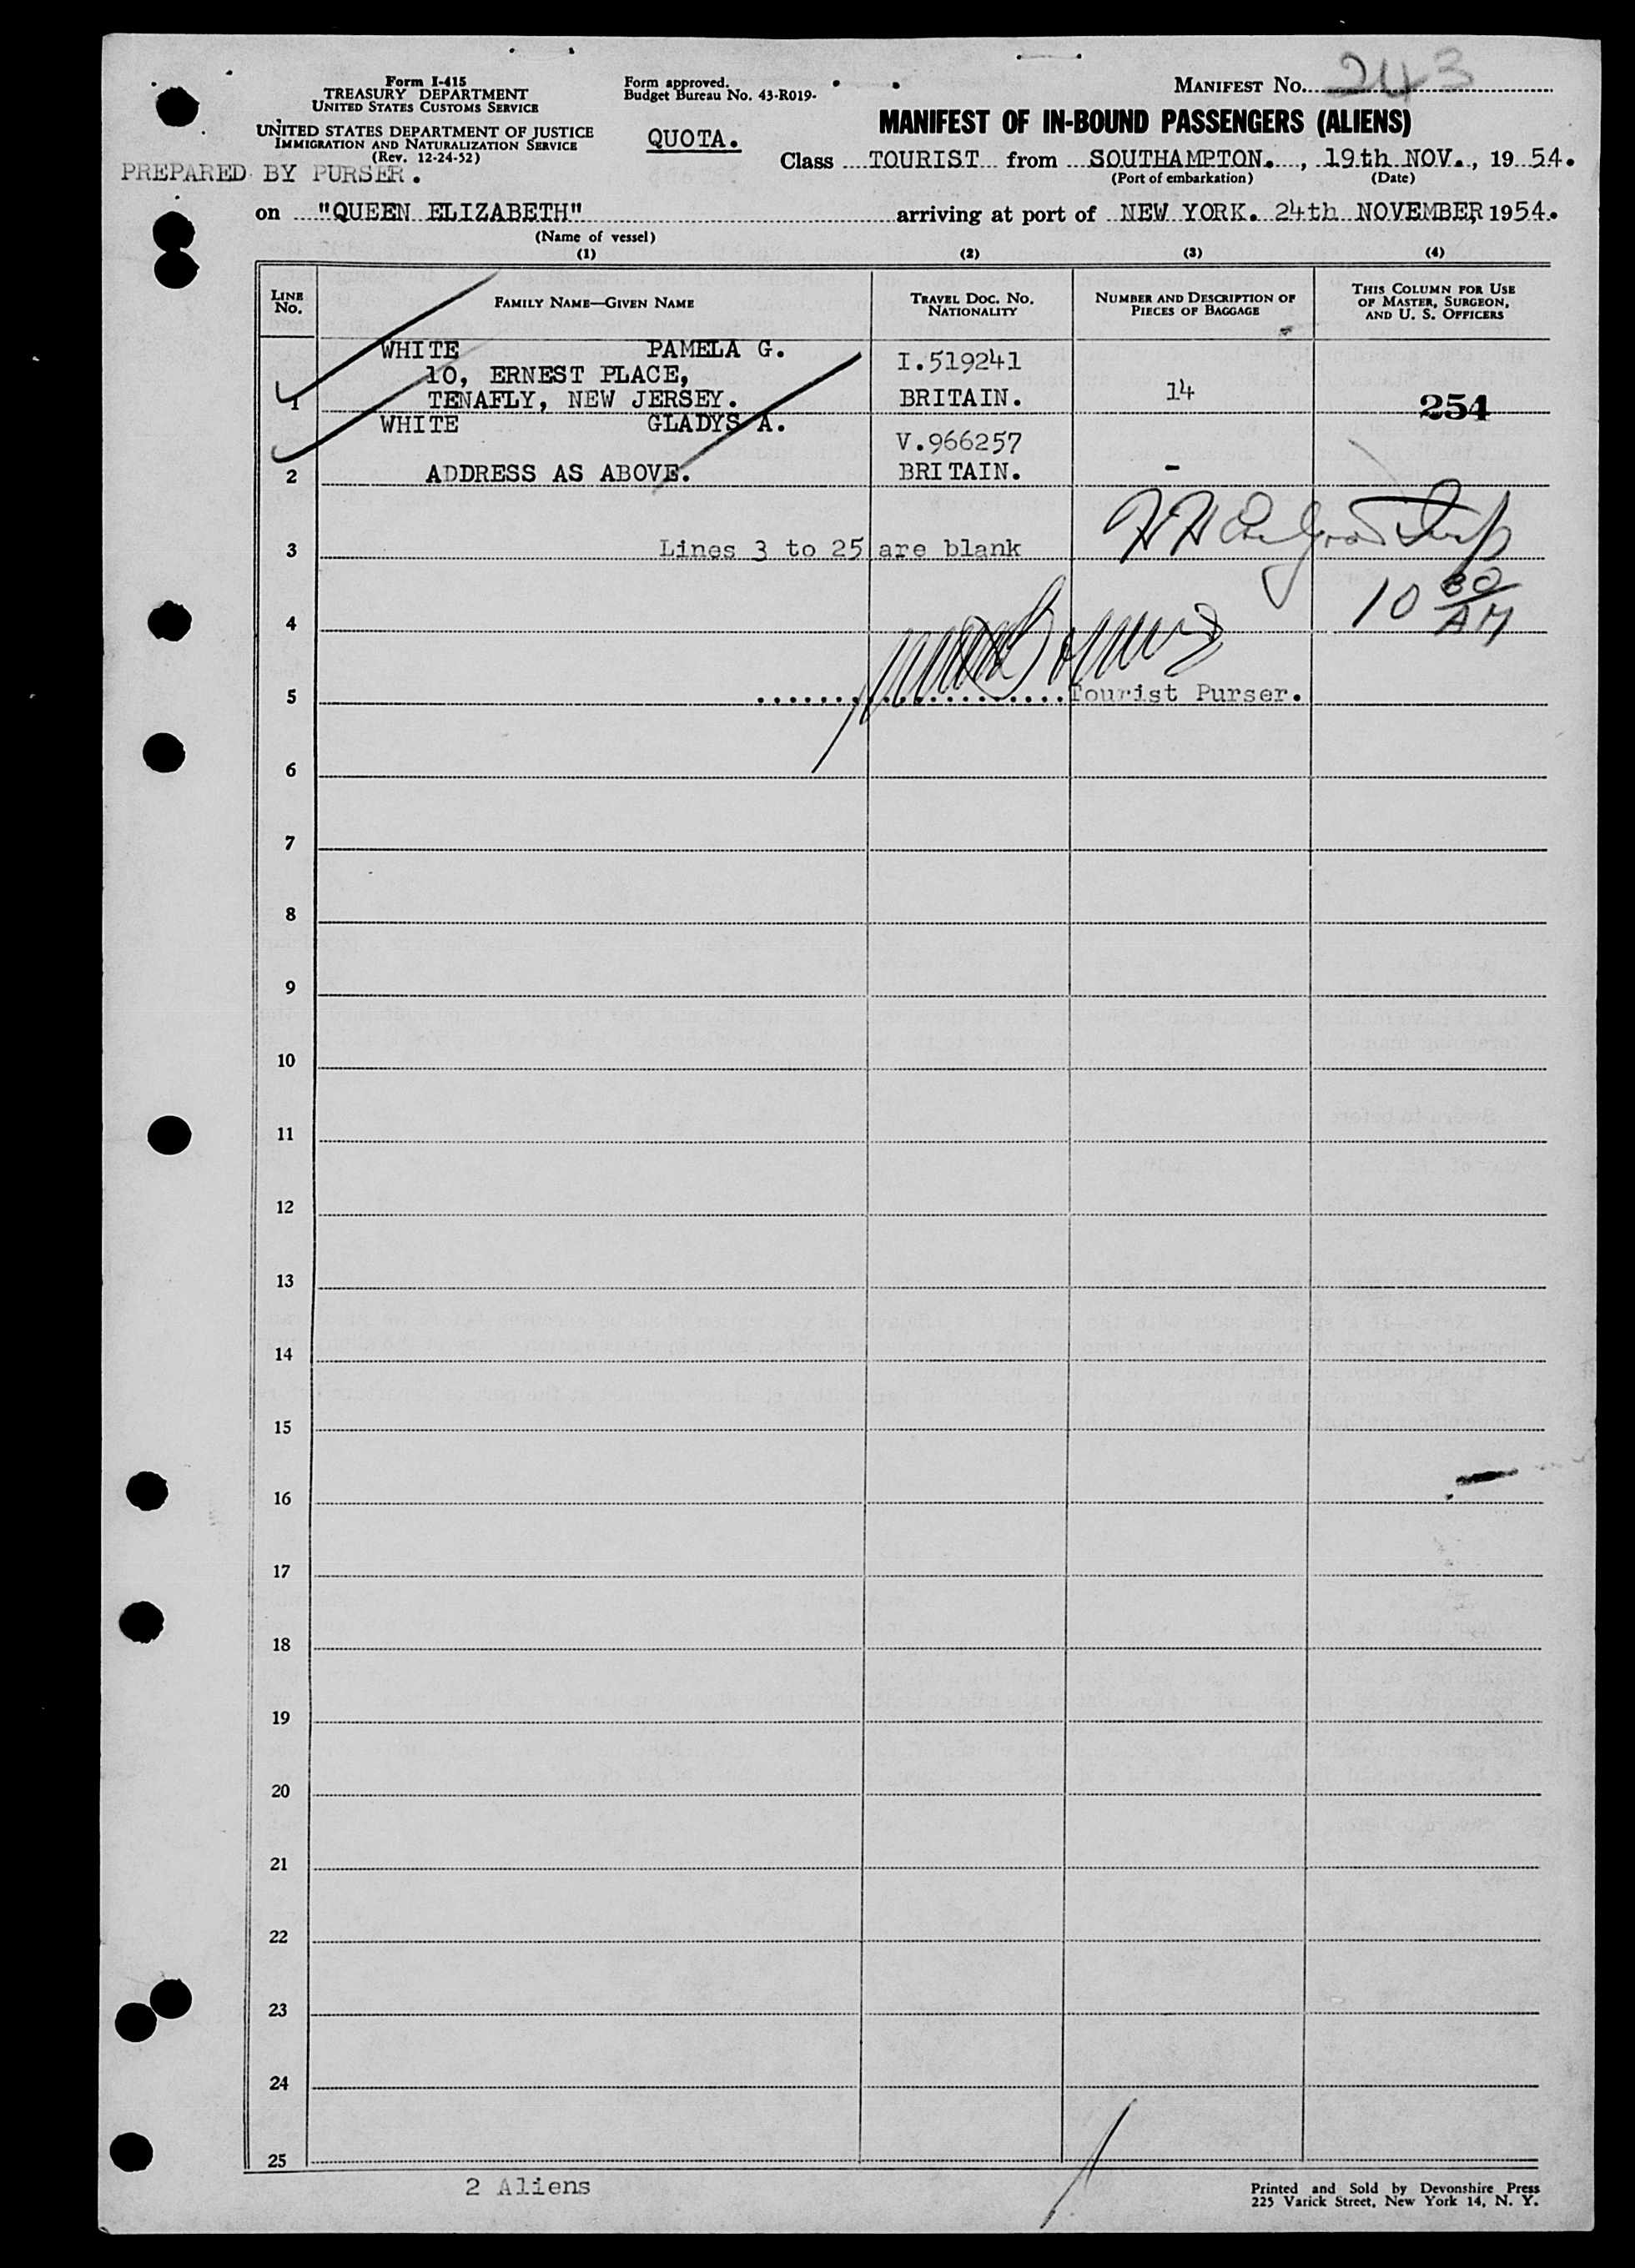 Form I-415
TREASURY DEPARTMENT
UNITED STATES CUSTOMS SERVICE
UNITED STATES DEPARTMENT OF JUSTICE
IMMIGRATION AND NATURALIZATION SERVICE
(Rev. 12-24-52)
PREPARED BY PURSER.
Form approved.
Budget Bureau No. 43-R019-
QUOTA.
MANIFEST NO. 243
MANIFEST OF IN-BOUND PASSENGERS (ALIENS)
Class TOURIST from SOUTHAMPTON., 19th NOV., 1954.
(Port of embarkation) (Date)
on "QUEEN ELIZABETH" arriving at port of NEW YORK. 24th NOVEMBER, 1954.
(Name of vessel)
(1) (2) (3) (4)
LINE NO. FAMILY NAME—GIVEN NAME TRAVEL DOC. NO. NATIONALITY NUMBER AND DESCRIPTION OF PIECES OF BAGGAGE THIS COLUMN FOR USE OF MASTER, SURGEON, AND U. S. OFFICERS
WHITE PAMELA G.
10, ERNEST PLACE, I.519241
1 TENAFLY, NEW JERSEY. BRITAIN. 14 254
WHITE GLADYS A.
V.966257
2 ADDRESS AS ABOVE. BRITAIN. -
3 Lines 3 to 25 are blank
10 30 AM
4
5 Tourist Purser.
6
7
8
9
10
11
12
13
14
15
16
17
18
19
20
21
22
23
24
25
2 Aliens
Printed and Sold by Devonshire Press
225 Varick Street, New York 14, N. Y.